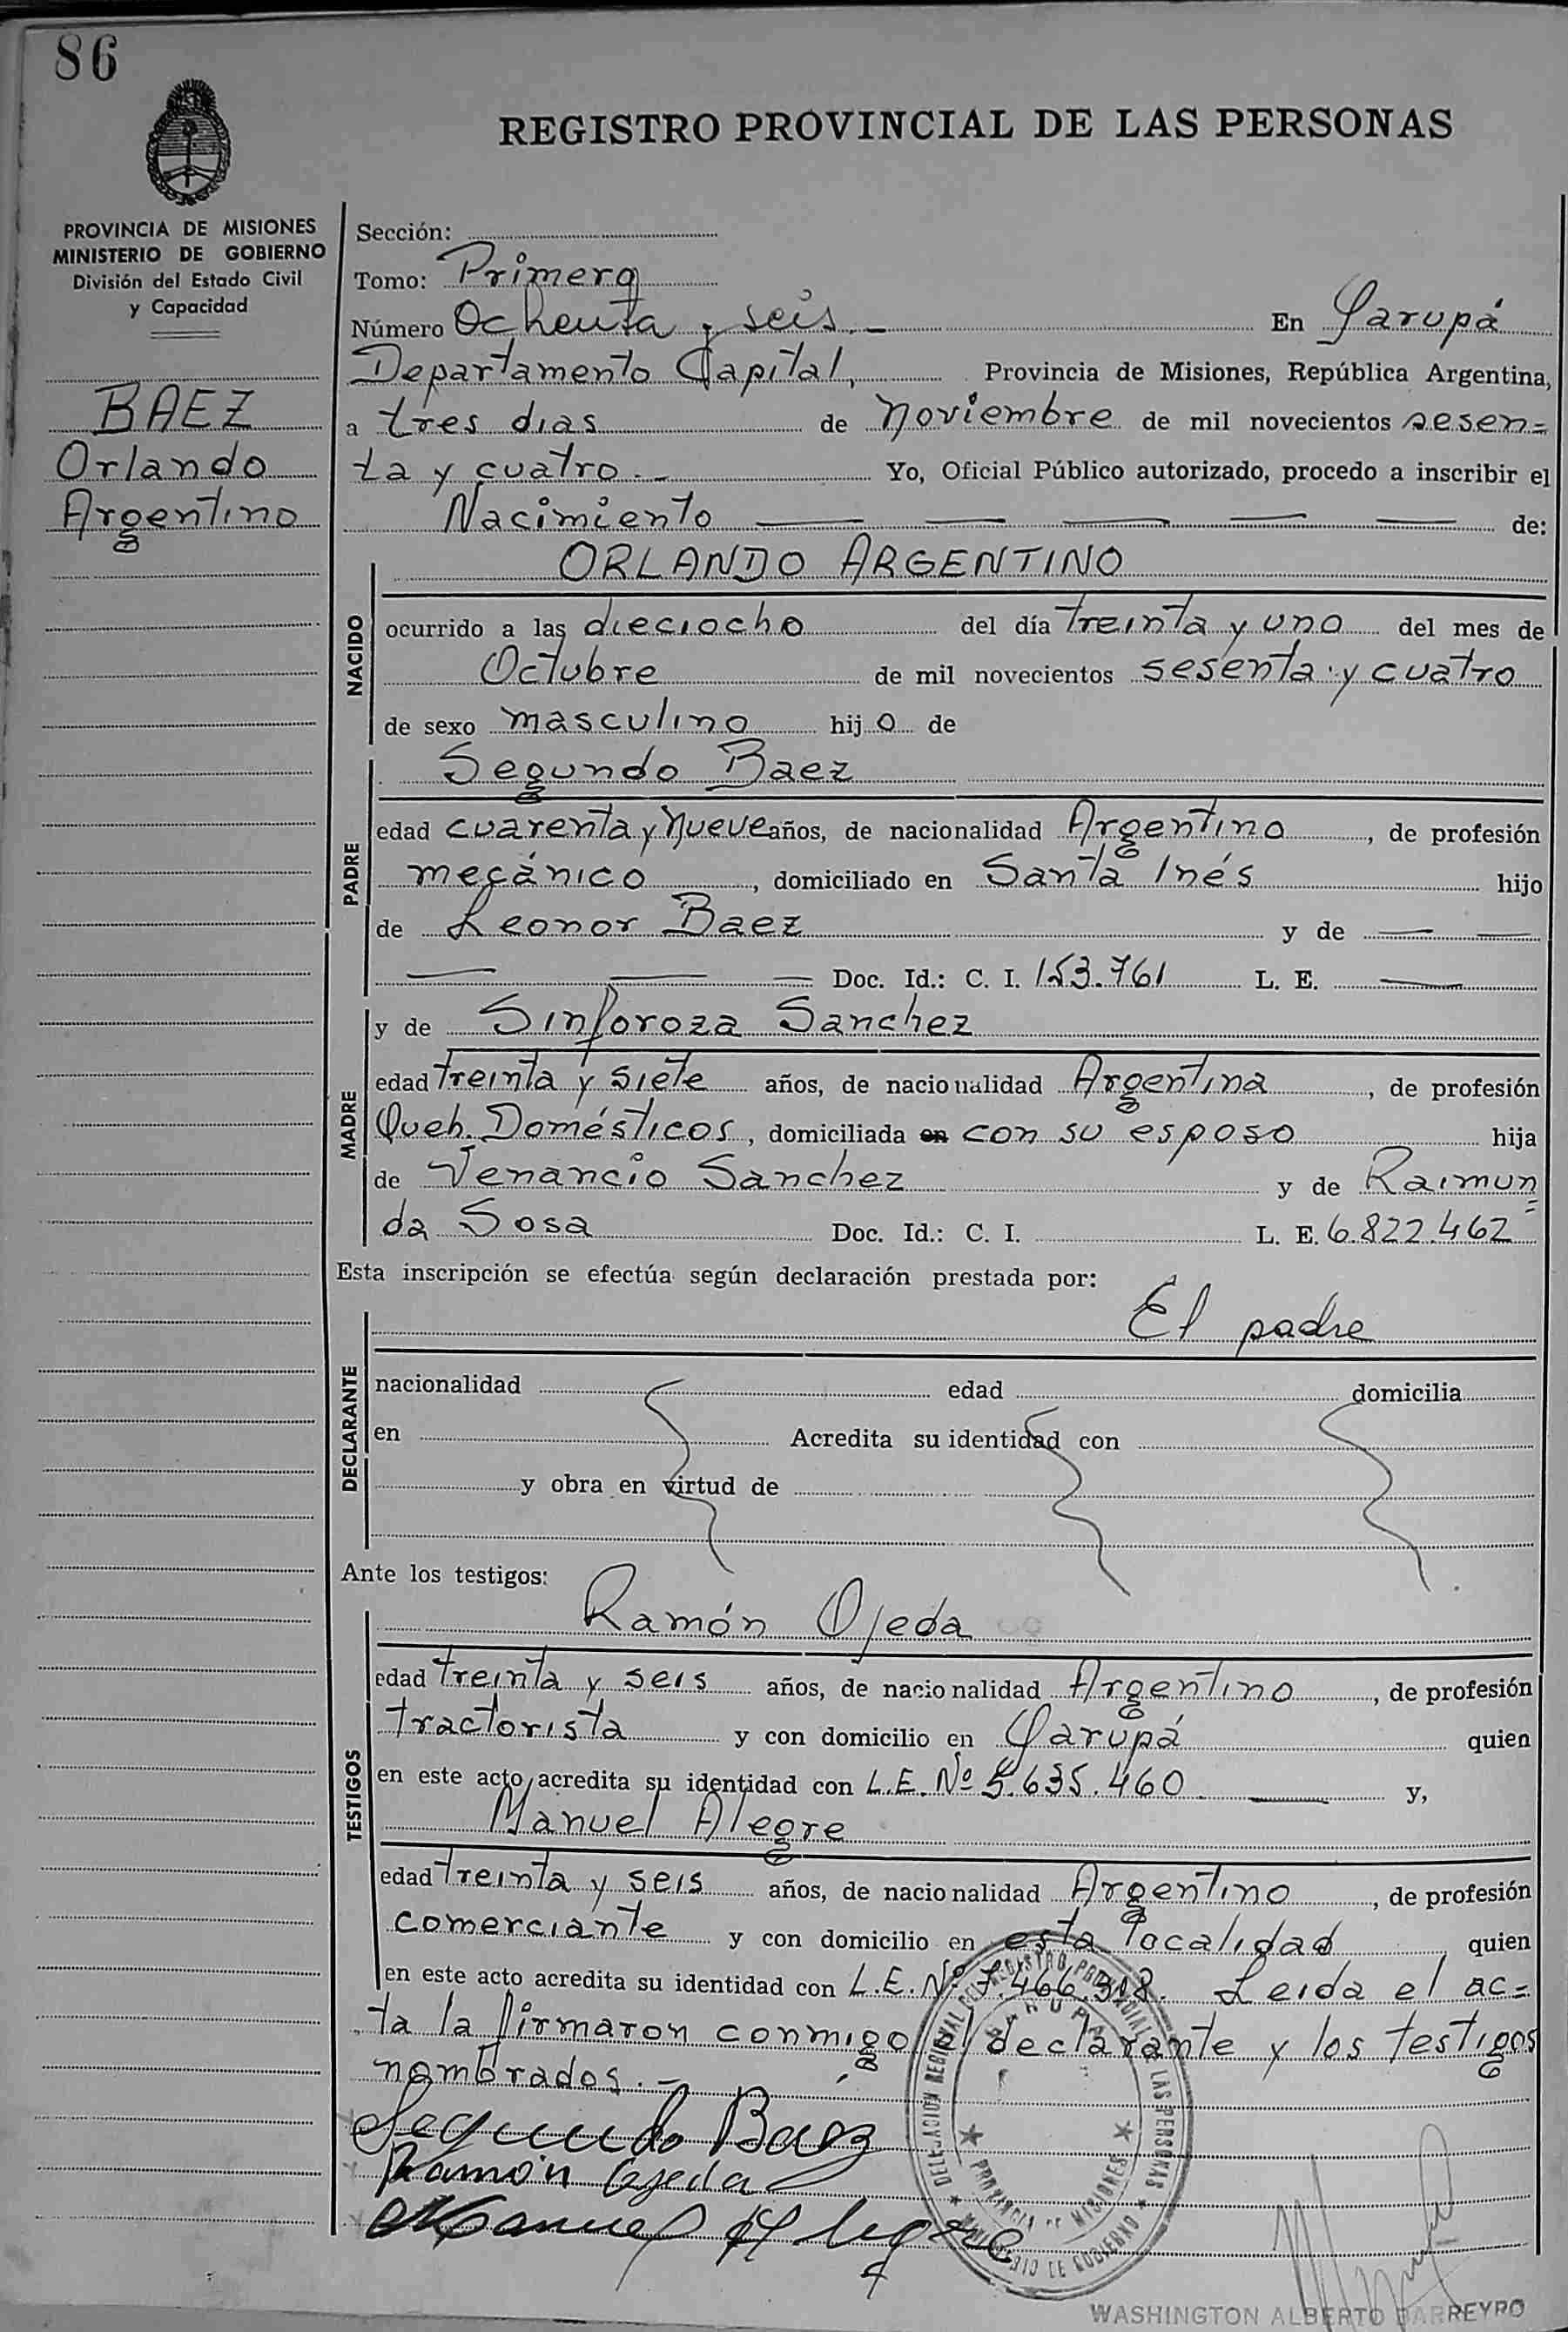 86
REGISTRO PROVINCIAL DE LAS PERSONAS
PROVINCIA DE MISIONES
MINISTERIO DE GOBIERNO
División del Estado Civil
y Capacidad
BAEZ
Orlando
Argentino
Sección:
Tomo: Primero
Número Ochenta y seis.- En Garupá
Departamento Capital, Provincia de Misiones, República Argentina,
a tres dias de Noviembre de mil novecientos sesen=
ta y cuatro.- Yo, Oficial Público autorizado, procedo a inscribir el
Nacimiento de:
NACIDO
ORLANDO ARGENTINO
ocurrido a las dieciocho del día treinta y uno del mes de
Octubre de mil novecientos sesenta y cuatro
de sexo masculino hijo de
PADRE
Segundo Baez
edad cuarenta y nueve años, de nacionalidad Argentino, de profesión
mecánico, domiciliado en Santa Inés hijo
de Leonor Baez y de
Doc. Id.: C. I. 153.761 L. E.
MADRE
y de Sinforoza Sanchez
edad treinta y siete años, de nacionalidad Argentina, de profesión
Queh. Domésticos, domiciliada en con su esposo hija
de Venancio Sanchez y de Raimun=
da Sosa Doc. Id.: C. I. L. E. 6.822.462
Esta inscripción se efectúa según declaración prestada por:
El padre
DECLARANTE
nacionalidad edad domicilia
en Acredita su identidad con
y obra en virtud de
Ante los testigos:
TESTIGOS
Ramón Ojeda
edad treinta y seis años, de nacionalidad Argentino, de profesión
tractorista y con domicilio en Garupá quien
en este acto acredita su identidad con L.E. Nº 5.635.460 y,
Manuel Alegre
edad treinta y seis años, de nacionalidad Argentino, de profesión
comerciante y con domicilio en esta localidad quien
en este acto acredita su identidad con L.E. Nº 7.466.318. Leida el ac=
ta la firmaron conmigo el declarante y los testigos
nombrados.-
Segundo Baez
Ramón Ojeda
Manuel Alegre
DELEGACION REGIONAL DEL REGISTRO PROVINCIAL DE LAS PERSONAS
GARUPA
PROVINCIA DE MISIONES
MINISTERIO DE GOBIERNO
WASHINGTON ALBERTO BARREYRO